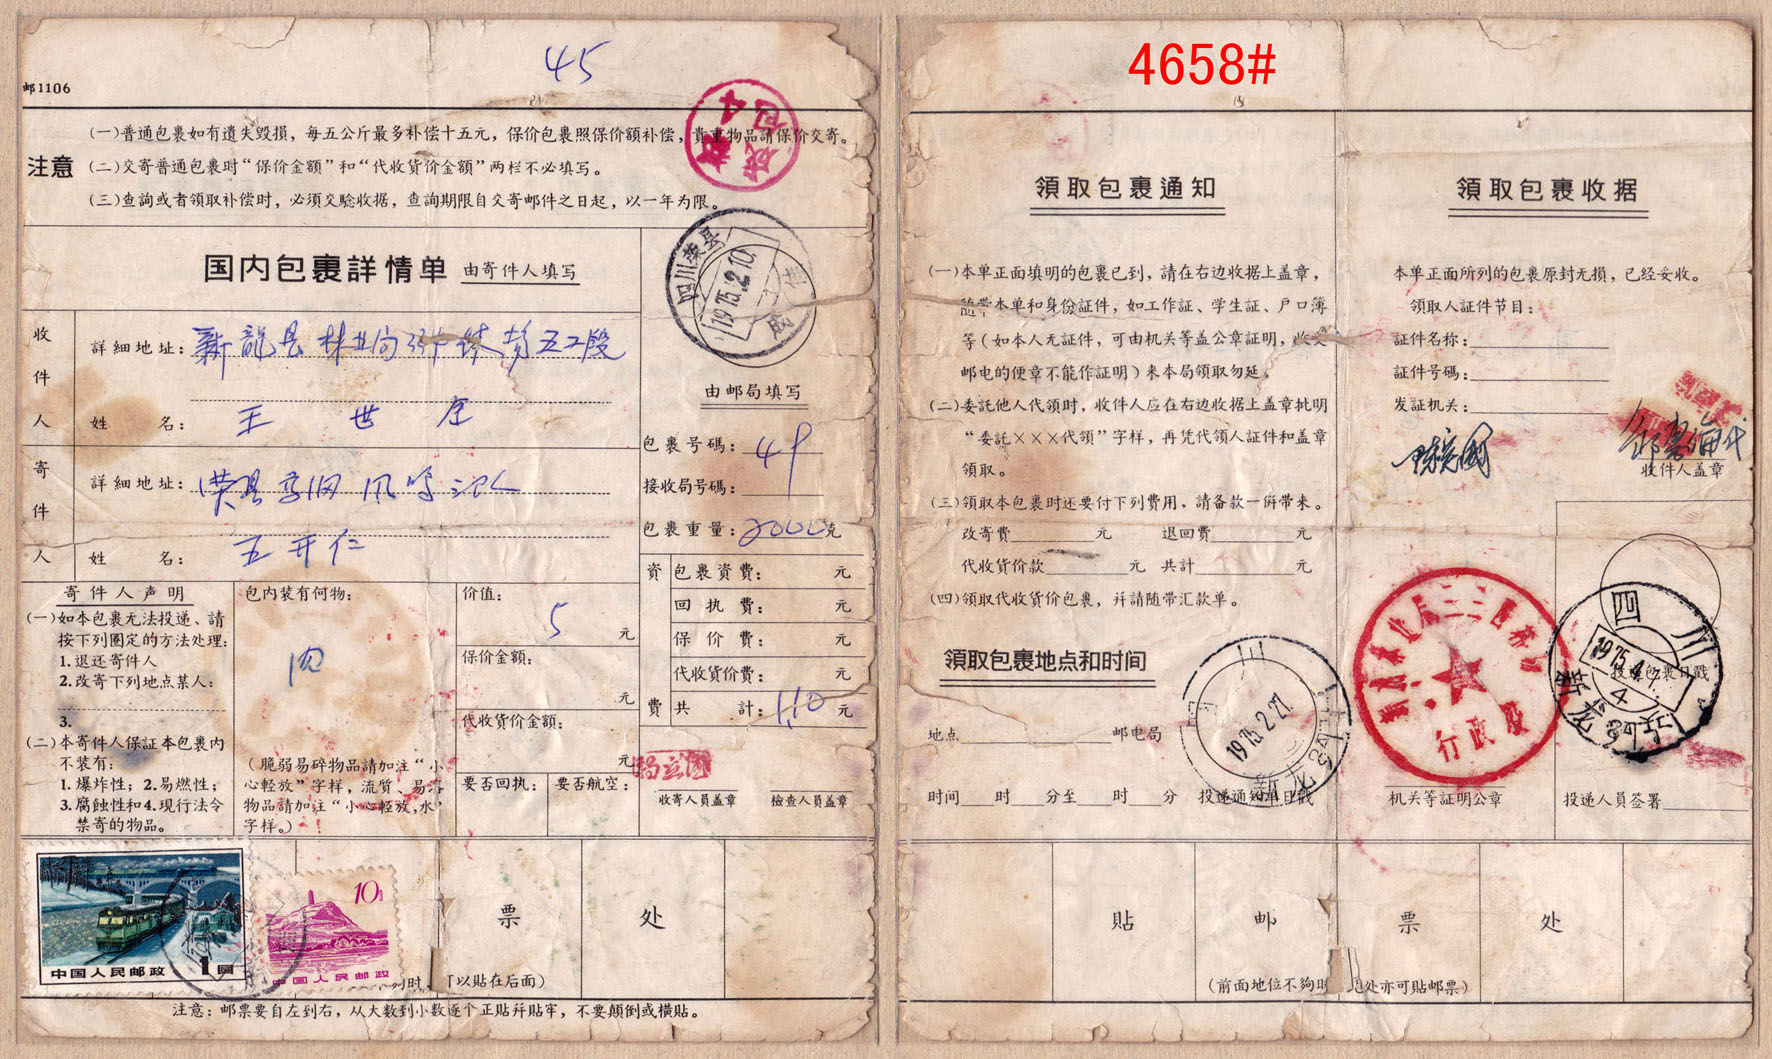 45
邮1106
注意
(一)普通包裹如有遺失毁損，每五公斤最多补偿十五元，保价包裹照保价額补偿，貴重物品請保价交寄。
(二)交寄普通包裹时“保价金額”和“代收貨价金額”两栏不必填写。
(三)查詢或者領取补偿时，必須交驗收据，查詢期限自交寄邮件之日起，以一年为限。
成都
巴4
国内包裹詳情单 由寄件人填写
四川荣县
1975.2.10
收件人
詳細地址：新龍县林业局
五工段
姓名：王世
寄件人
詳細地址：荣县
姓名：王开仁
由邮局填写
包裹号碼：49
接收局号碼：
包裹重量：2000克
資費
包裹資費： 元
回执費： 元
保价費： 元
代收貨价費： 元
共計：1.10元
寄件人声明
(一)如本包裹无法投递、請
按下列圈定的方法处理：
1.退还寄件人
2.改寄下列地点某人：
3.
(二)本寄件人保証本包裹内
不装有：
1.爆炸性；2.易燃性；
3.腐蝕性和4.現行法令
禁寄的物品。
包内装有何物：
肉
(脆弱易碎物品請加注“小
心輕放”字样，流质、易溶
物品請加注“小心輕放，水”
字样。)
价值：
5 元
保价金額：
元
代收貨价金額：
元
要否回执：
要否航空：
收寄人員盖章
檢查人員盖章
中国人民邮政
1圆
10分
中国人民邮政
票
处
可以貼在后面)
注意：邮票要自左到右，从大数到小数逐个正貼幷貼牢，不要顛倒或横貼。
4658#
領取包裹通知
(一)本单正面填明的包裹已到，請在右边收据上盖章，
随带本单和身份証件，如工作証、学生証、戶口簿
等(如本人无証件，可由机关等盖公章証明，收交
邮电的便章不能作証明)来本局領取勿延。
(二)委託他人代領时，收件人应在右边收据上盖章批明
“委託×××代領”字样，再凭代領人証件和盖章
領取。
(三)領取本包裹时还要付下列費用，請备款一倂带来。
改寄費 元 退回費 元
代收貨价款 元 共計 元
(四)領取代收貨价包裹，幷請随带汇款单。
領取包裹地点和时间
地点 邮电局
时间 时 分至 时 分
投递通知单日戳
1975.2.27
領取包裹收据
本单正面所列的包裹原封无損，已經妥收。
領取人証件节目：
証件名称：
証件号碼：
发証机关：
收件人盖章
行政股
机关等証明公章
四川
1975.4.7
4
投递包裹日戳
投递人員签署
貼
邮
票
处
(前面地位不夠时 此处亦可貼邮票)